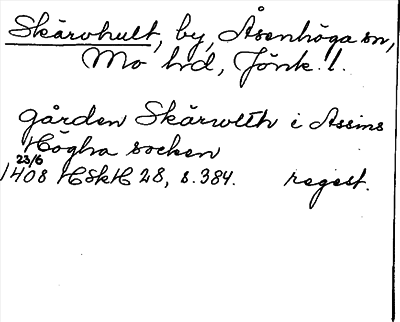 Skärvhult, by, Åsenhöga sn,
Mo hd, Jönk. l.
gården Skärwlth i Assins
Högha socken
23/6
1408 HSkH 28, s. 384. regest.